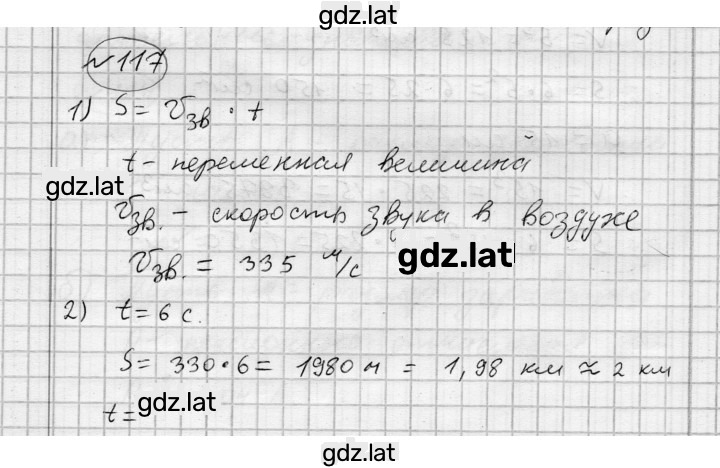 gdz.lat
№117
1) S = Vзв · t
t - переменная величиной
gdz.lat
Vзв. - скорость звука в воздухе
Vзв. = 335 м/с
gdz.lat
2) t = 6 с.
S = 330 · 6 = 1980 м = 1,98 км ≈ 2 км
t =
gdz.lat
gdz.lat